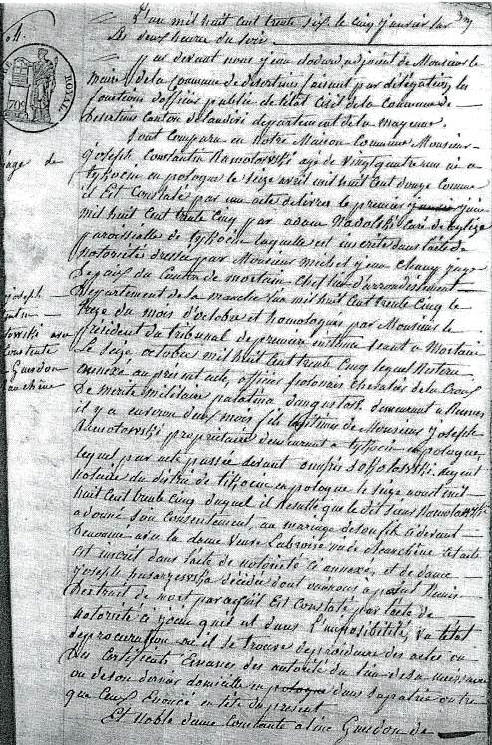 L'an mil huit cent trente six le cinq janvier sur
les deux heure du soir
devant nous jean adjoint de Monsieur le
maire de la Commune de desertines faisant par délégation les
fonctions d'officier public de l'état civil de la Commune de
desertines canton de landivi departement de la mayenne
sont comparu en notre Maison commune Monsieur
joseph, Constantin Ramotowski age de vingt quatre ans né a
tykocin en pologne le seize avril mil huit cent douze comme
il est Constaté par une acte delivrée le premier juin
mil huit cent trente cinq par adam Nadolski Curé de leglise
paroissialle de tykocin laquelle est enserée dans l'acte de
notoriété dressée par Monsieur michel jean juge
de paix du Canton de mortain Chef lieu d'arrondissement
Departement de la manche l'an mil huit cent trente cinq le
treze du mois d'octobre et homologuée par Monsieur le
président du tribunal de premiere instance seant a Mortain
le seize octobre mil huit cent trente cinq lequel restera
annexé au present acte, officier polonais Chevalier de la Croix
de merite militaire demeurant a Rennes
il y a environ deux mois fils légitime de Monsieur joseph
Ramotowski propriétaire demeurant a tykocin en pologne,
lequel par acte passée devant onufri Sokolowski regent
notaire du district de tikocin en pologne le seize aout mil
huit cent trente cinq duquel il resulte que le dit sieur Ramotowski
a donné son Consentement, au mariage de son fils ci devant
Denommé avec la dame veuve Labroise née de blanchéne cet acte
est inseré dans l'acte de notoriété ci annexé, et de dame
joseph decédée dont
D'extrait de mort par ce qu'il est Constaté par l'acte de
notoriété ci joint qu'il est dans l'impossibilité, vu l'état
de procuration où il se trouve de produire des actes ou
des Certificats Emanés des autorité du lieu de sa naissance
ou de son dernier domicille en pologne dans sa patrie outre
que Ceux Enoncé en tête du present
Et noble dame Constante aline Guesdon de
04.
ROYALE
iage de
joseph
tantin
towski avec
Constante
Guesdon
anchéne